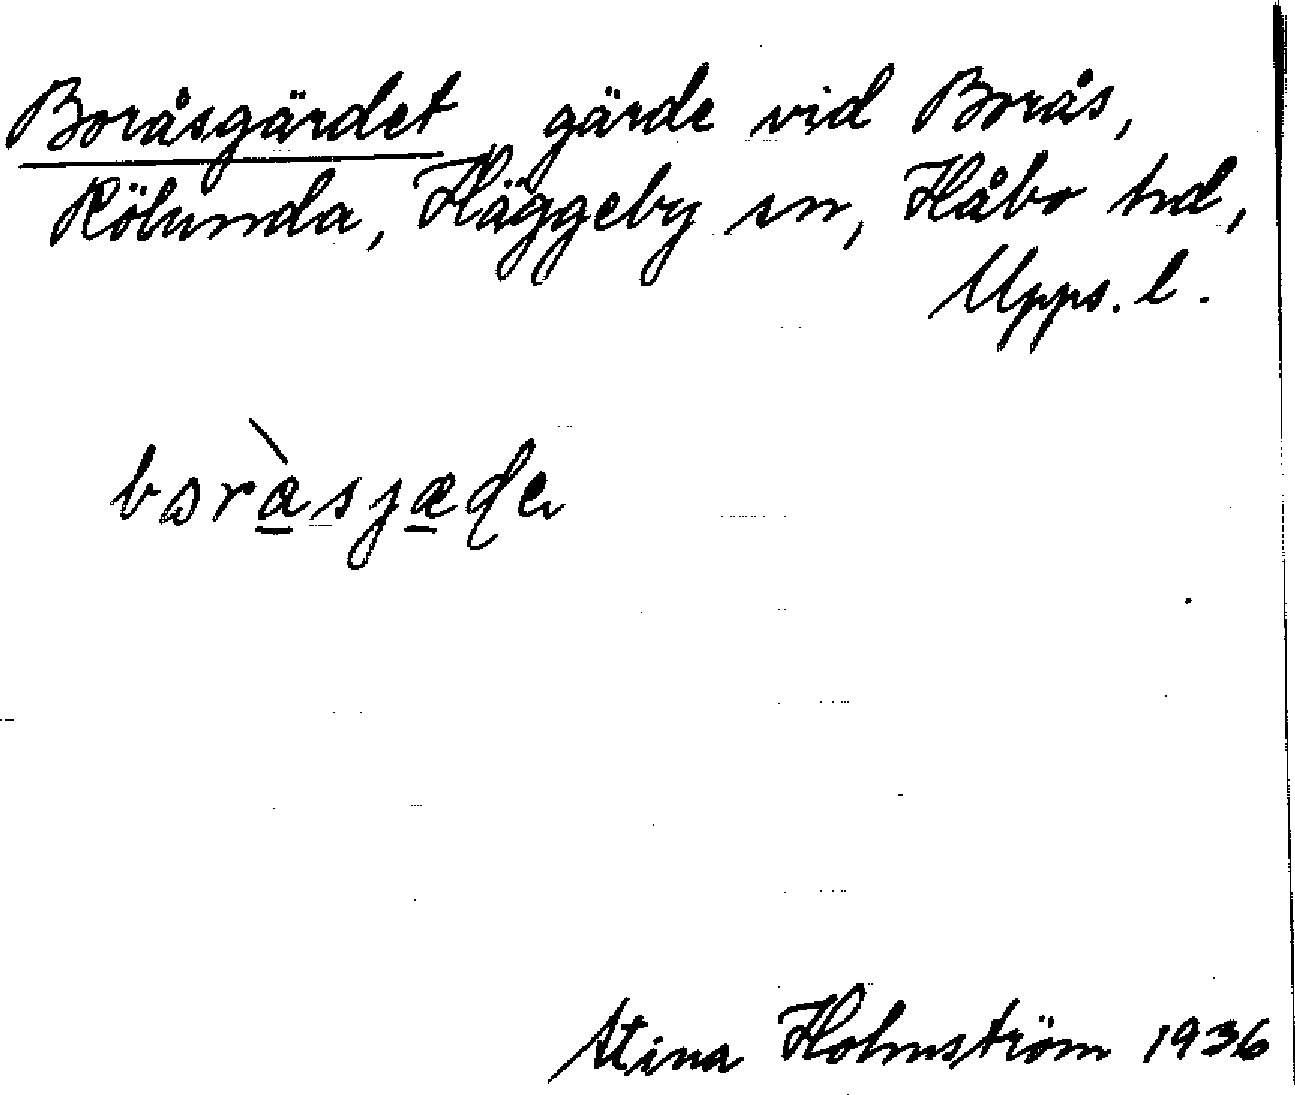 Boråsgärdet gärde vid Borås,
Rölunda, Häggeby sn, Håbo hd,
Upps. l.
Stina Holmström 1936